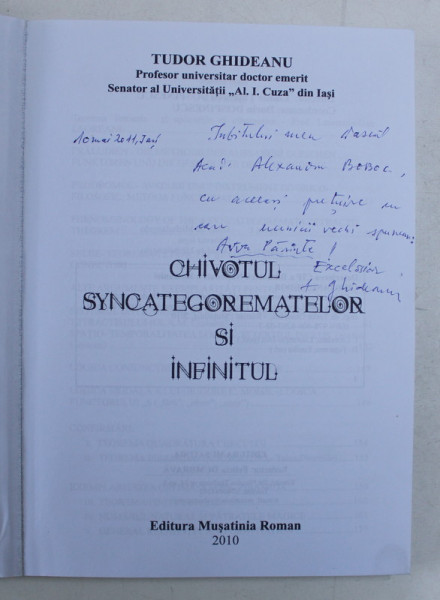 TUDOR GHIDEANU
Profesor universitar doctor emerit
Senator al Universității „Al. I. Cuza” din Iași
10 mai 2011, Iași
Iubitului meu dascăl
Acad. Alexandru BOBOC,
cu aceeași prețuire cu
care unii vechi spuneau:
Avva Părinte!
Excelsior,
T. Ghideanu
CHIVOTUL
SYNCATEGOREMATELOR
SI
INFINITUL
Editura Mușatinia Roman
2010